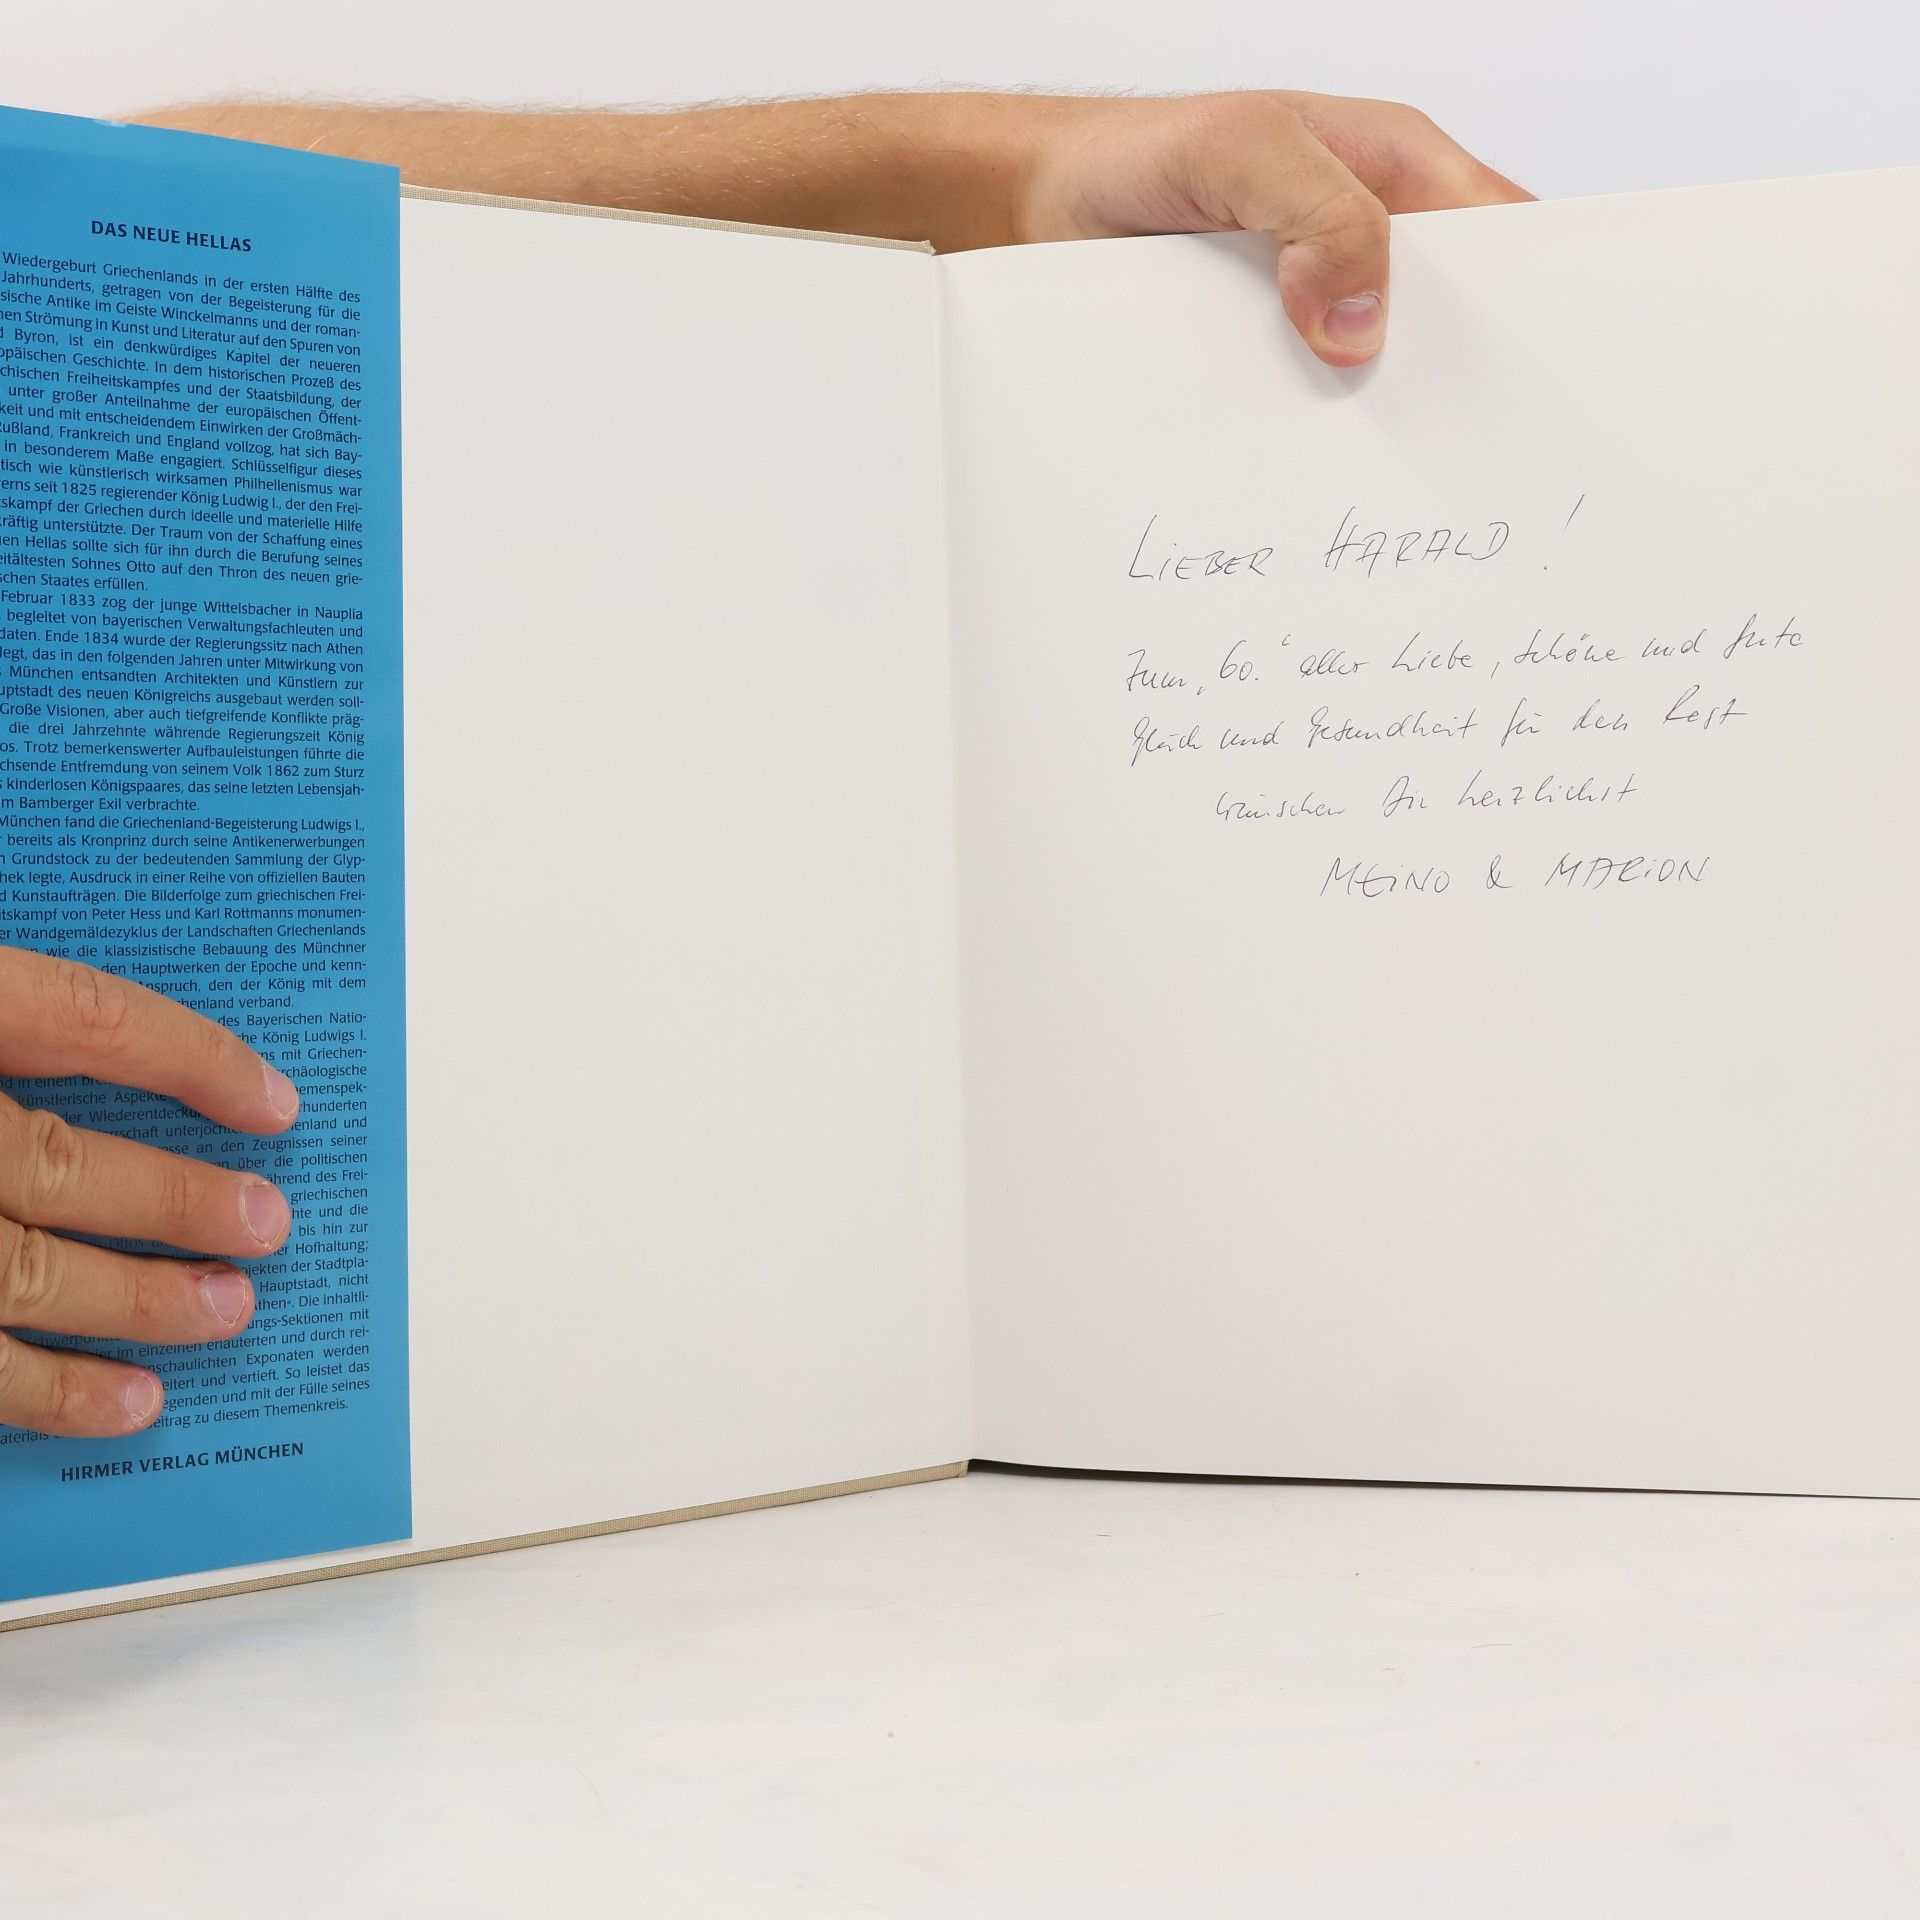 DAS NEUE HELLAS
Wiedergeburt Griechenlands in der ersten Hälfte des
Jahrhunderts, getragen von der Begeisterung für die
sische Antike im Geiste Winckelmanns und der roman-
hen Strömung in Kunst und Literatur auf den Spuren von
d Byron, ist ein denkwürdiges Kapitel der neueren
opäischen Geschichte. In dem historischen Prozeß des
chischen Freiheitskampfes und der Staatsbildung, der
unter großer Anteilnahme der europäischen Öffent-
keit und mit entscheidendem Einwirken der Großmäch-
Rußland, Frankreich und England vollzog, hat sich Bay-
in besonderem Maße engagiert. Schlüsselfigur dieses
tisch wie künstlerisch wirksamen Philhellenismus war
erns seit 1825 regierender König Ludwig I., der den Frei-
tskampf der Griechen durch ideelle und materielle Hilfe
kräftig unterstützte. Der Traum von der Schaffung eines
uen Hellas sollte sich für ihn durch die Berufung seines
eitältesten Sohnes Otto auf den Thron des neuen grie-
schen Staates erfüllen.
Februar 1833 zog der junge Wittelsbacher in Nauplia
, begleitet von bayerischen Verwaltungsfachleuten und
daten. Ende 1834 wurde der Regierungssitz nach Athen
legt, das in den folgenden Jahren unter Mitwirkung von
s München entsandten Architekten und Künstlern zur
uptstadt des neuen Königreichs ausgebaut werden soll-
Große Visionen, aber auch tiefgreifende Konflikte präg-
die drei Jahrzehnte während Regierungszeit König
os. Trotz bemerkenswerter Aufbauleistungen führte die
chsende Entfremdung von seinem Volk 1862 zum Sturz
s kinderlosen Königspaares, das seine letzten Lebensjah-
m Bamberger Exil verbrachte.
München fand die Griechenland-Begeisterung Ludwigs I.,
r bereits als Kronprinz durch seine Antikenerwerbungen
n Grundstock zu der bedeutenden Sammlung der Glyp-
hek legte, Ausdruck in einer Reihe von offiziellen Bauten
d Kunstaufträgen. Die Bilderfolge zum griechischen Frei-
itskampf von Peter Hess und Karl Rottmanns monumen-
er Wandgemäldezyklus der Landschaften Griechenlands
wie die klassizistische Bebauung des Münchner
den Hauptwerken der Epoche und kenn-
Anspruch, den der König mit dem
henland verband.
des Bayerischen Natio-
he König Ludwigs I.
ns mit Griechen-
rchäologische
nd in einem emenspek-
künstlerische Aspekte rhunderten
der Wiederentdecku enland und
rrschaft unterjocht sse an den Zeugnissen seiner
en über die politischen
ährend des Frei-
griechischen
hte und die
bis hin zur
Ottos er Hofhaltung;
ojekten der Stadtpla-
Hauptstadt, nicht
Athen«. Die inhaltli-
ungs-Sektionen mit
chwerpunkt
hier im einzelnen erläuterten und durch rei-
nschaulichten Exponaten werden
eitert und vertieft. So leistet das
egenden und mit der Fülle seines
aterials eitrag zu diesem Themenkreis.
HIRMER VERLAG MÜNCHEN
LIEBER HARALD !
Zum „60.“ alles Liebe, Schöne und Gute
Glück und Gesundheit für den Rest
wünschen Dir herzlichst
MEINO & MARION